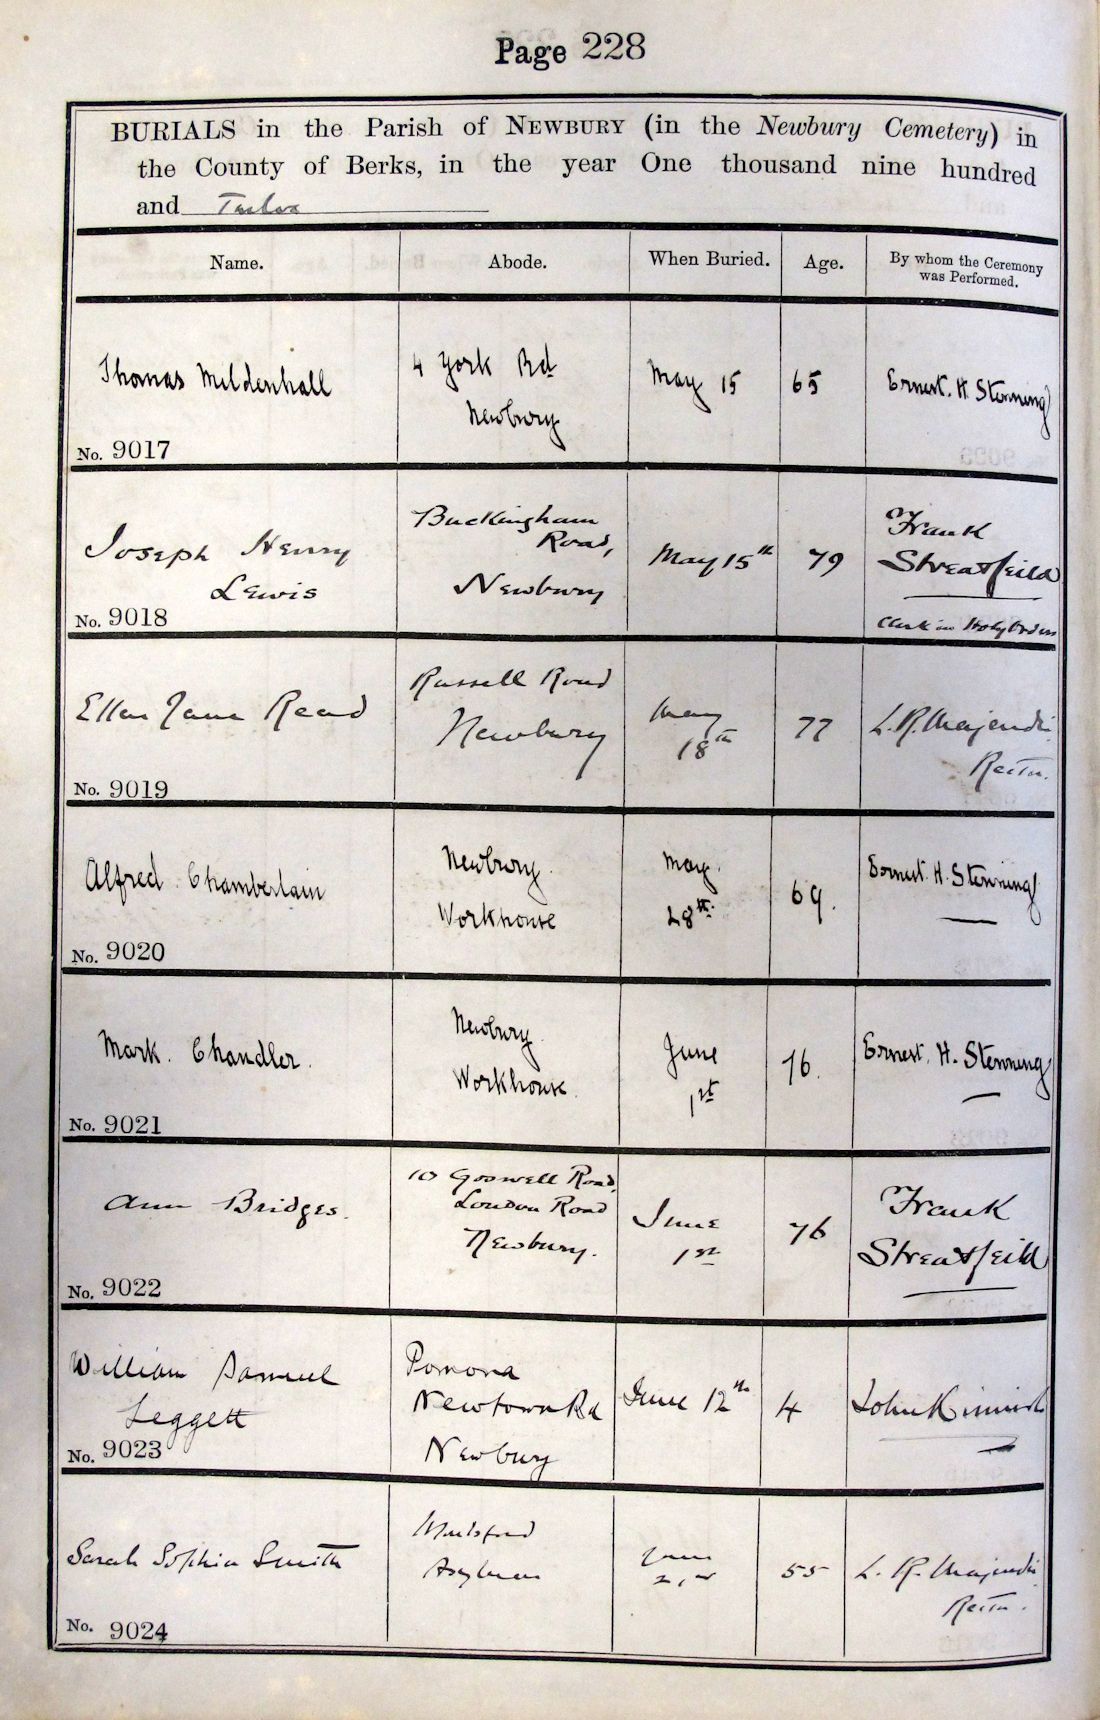 Page 228
BURIALS in the Parish of NEWBURY (in the Newbury Cemetery) in
the County of Berks, in the year One thousand nine hundred
and Twelve
Name.
Abode.
When Buried.
Age.
By whom the Ceremony
was Performed.
Thomas Mildenhall
No. 9017
4 York Rd
Newbury
May 15
65
Ernest. H. Stenning
Joseph Henry
Lewis
No. 9018
Buckingham
Road,
Newbury
May 15th
79
Frank
Streatfeild
Clerk in Holy Orders
Ellen Jane Read
No. 9019
Russell Road
Newbury
May
18th
77
L. R. Majendie
Rector.
Alfred Chamberlain
No. 9020
Newbury
Workhouse
May
28th
69.
Ernest. H. Stenning
Mark. Chandler.
No. 9021
Newbury
Workhouse.
June
1st
76.
Ernest. H. Stenning
Ann Bridges.
No. 9022
10 Goswell Road,
London Road
Newbury.
June
1st
76
Frank
Streatfeild
William Samuel
Leggett
No. 9023
Pomona
Newtown Rd
Newbury
June 12th
4
John
Sarah Sophia Smith
No. 9024
Moulsford
Asylum
June
55
L. R. Majendie
Rector.